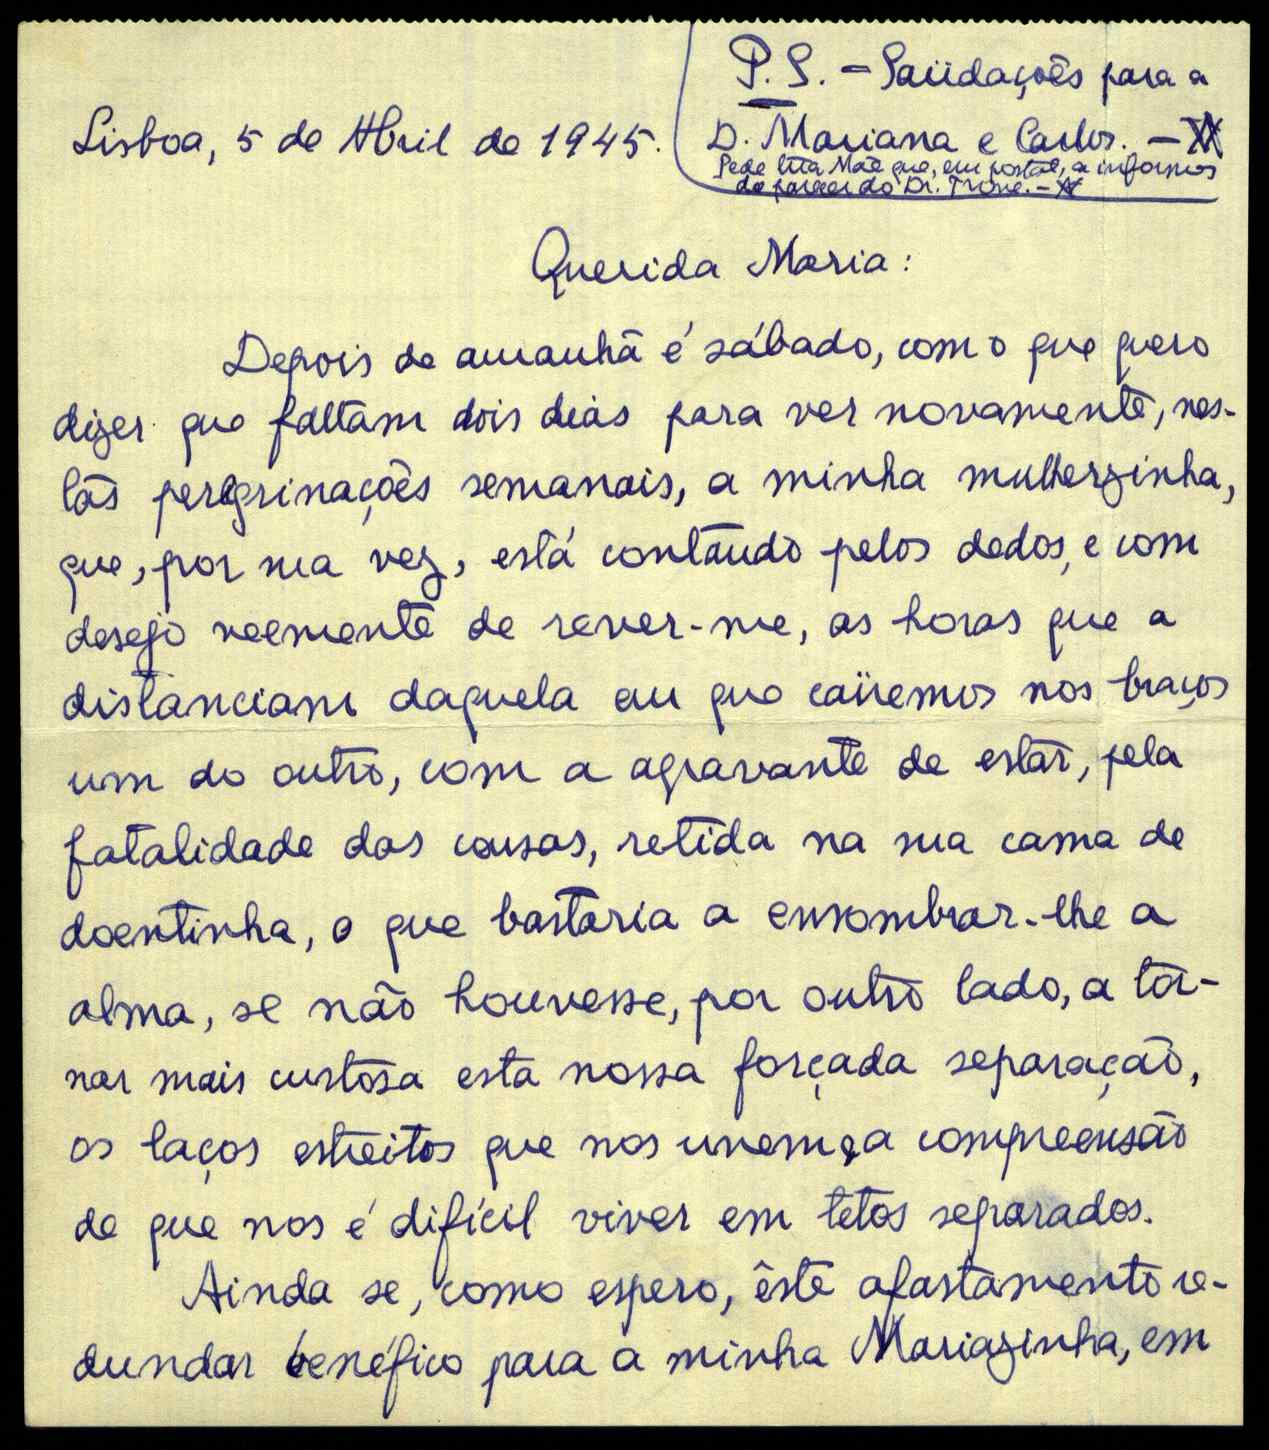 P.S. - Saüdações para a
D. Mariana e Carlos. -
Pede tua Mãe que, em postal, a informes
do parecer do Dr. -
Lisboa, 5 de Abril de 1945.
Querida Maria:
Depois de amanhã é sábado, com o que quero
dizer que faltam dois dias para ver novamente, nes-
tas peregrinações semanais, a minha mulherzinha,
que, por sua vez, está contando pelos dedos, e com
desejo veemente de rever-me, as horas que a
distanciam daquela em que caïremos nos braços
um do outro, com a agravante de estar, pela
fatalidade das cousas, retida na sua cama de
doentinha, o que bastaria a ensombrar-lhe a
alma, se não houvesse, por outro lado, a tor-
nar mais custosa esta nossa forçada separação,
os laços estreitos que nos unem e a compreensão
de que nos é difícil viver em tetos separados.
Ainda se, como espero, êste afastamento re-
dundar benéfico para a minha Mariazinha, em